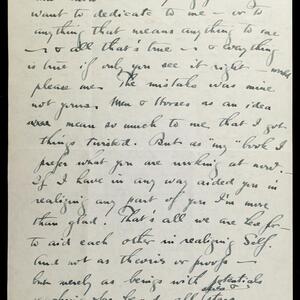 want to dedicate to me – or to
anything that means anything to me
– & all that's true – & everything
is true if only you see it right – would
please me. The mistake was mine
not yours. Men & Horses as an idea
mean so much to me that I got
things twisted. But as "my" book I
prefer what you are working at now.
If I have in any way aided you in
realizing any part of you I'm more
than glad. That's all we are here for
to aid each other in realizing Self.
And not as theories or proofs –
but merely as beings with potentials